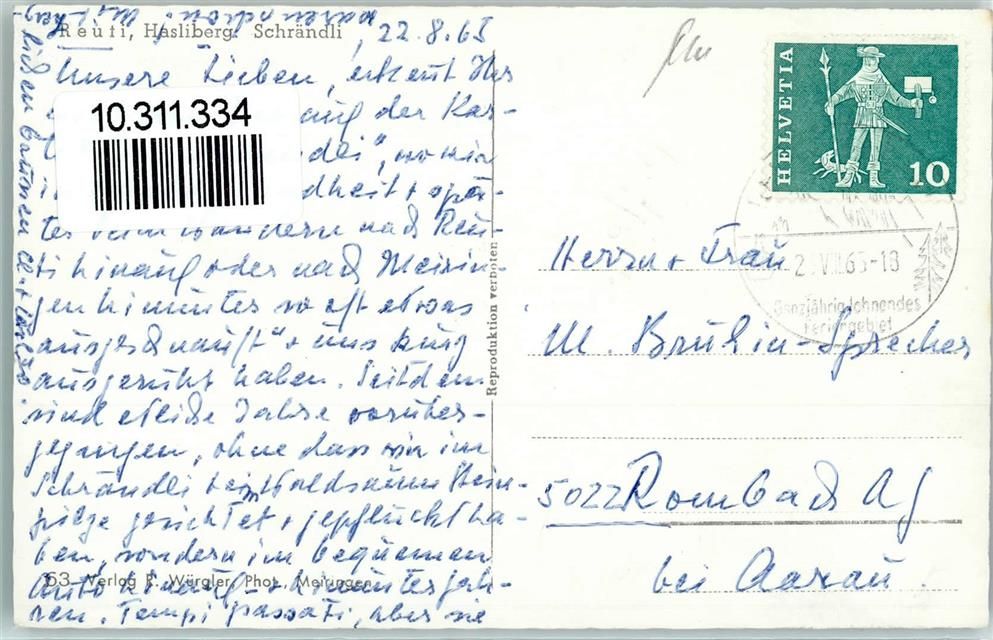 Reuti, Hasliberg. Schrändli
, 22.8.65
Unsere Lieben, erkennt Ihr
10.311.334
auf der Kar-
ndli", wo wir
dheit + spä-
ter beim wandern nach Reu-
ti hinauf oder nach Meirin-
gen hinunter so oft etwas
"ausgeschnauft" + uns kurz
ausgeruht haben. Seitdem
sind etliche Jahre vorüber-
gegangen, ohne dass wir im
Schrändli + am Waldsaum Stein-
pilze gesichtet + gepflückt ha-
ben, sondern im bequemen
Auto hinauf- + hinunterfah-
ren. Tempi passati, aber sie
waren schön! Mit herz-
lichen Grüssen
63 Verlag R. Würgler, Phot. Meiringen
Reproduktion verboten
HELVETIA
10
2 .VIII.65-18
Ganzjährig lohnendes
Feriengebiet
Herrn + Frau
M. Brulin-Sprecher
5022 Rombach AG
bei Aarau.